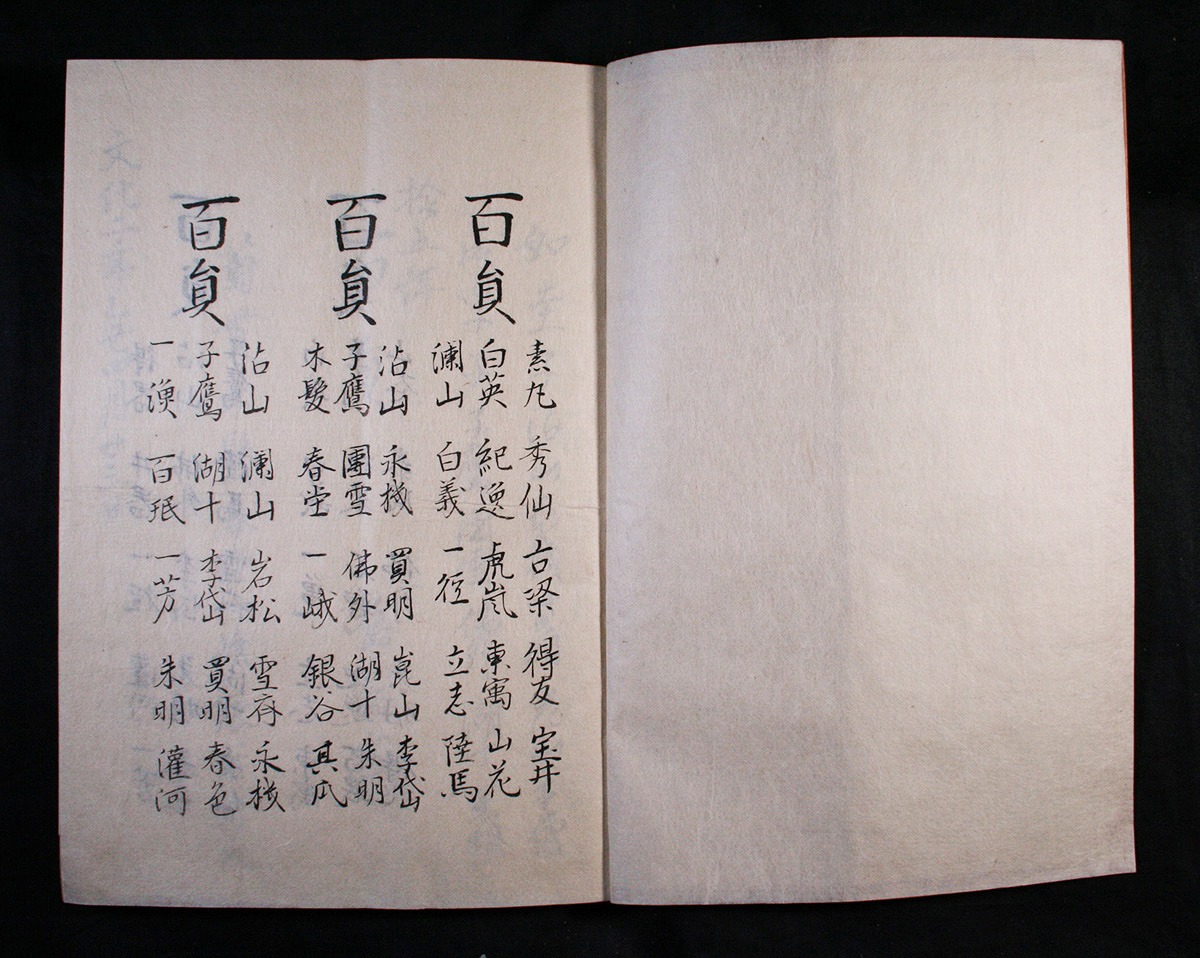 百員
素丸 秀仙 古梁 得友 宝井
白英 紀逸 虎嵐 東寓 山花
瀾山 白義 一径 立志 陸馬
百員
沾山 永機 買明 崑山 李岱
子鷹 團雪 佛外 湖十 朱明
木髪 春堂 一峨 銀谷 其爪
百員
沾山 瀾山 岩松 雪斎 永機
子鷹 湖十 李岱 買明 春色
一漁 百珉 一芳 朱明 灌河